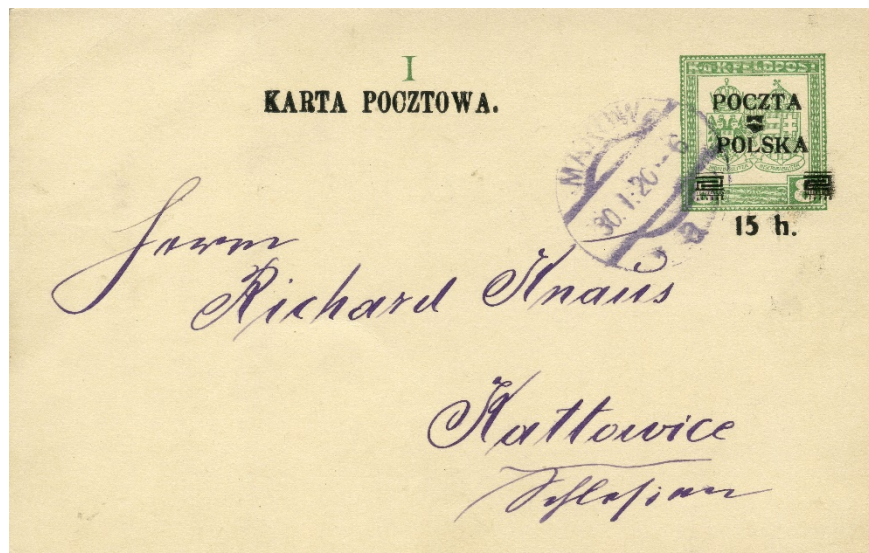 I
KARTA POCZTOWA.
K.u.K. FELDPOST
POCZTA
POLSKA
15 h.
MAKÓW
30.I.20-6
Herrn
Richard Knaus
Kattowice
Schlesien